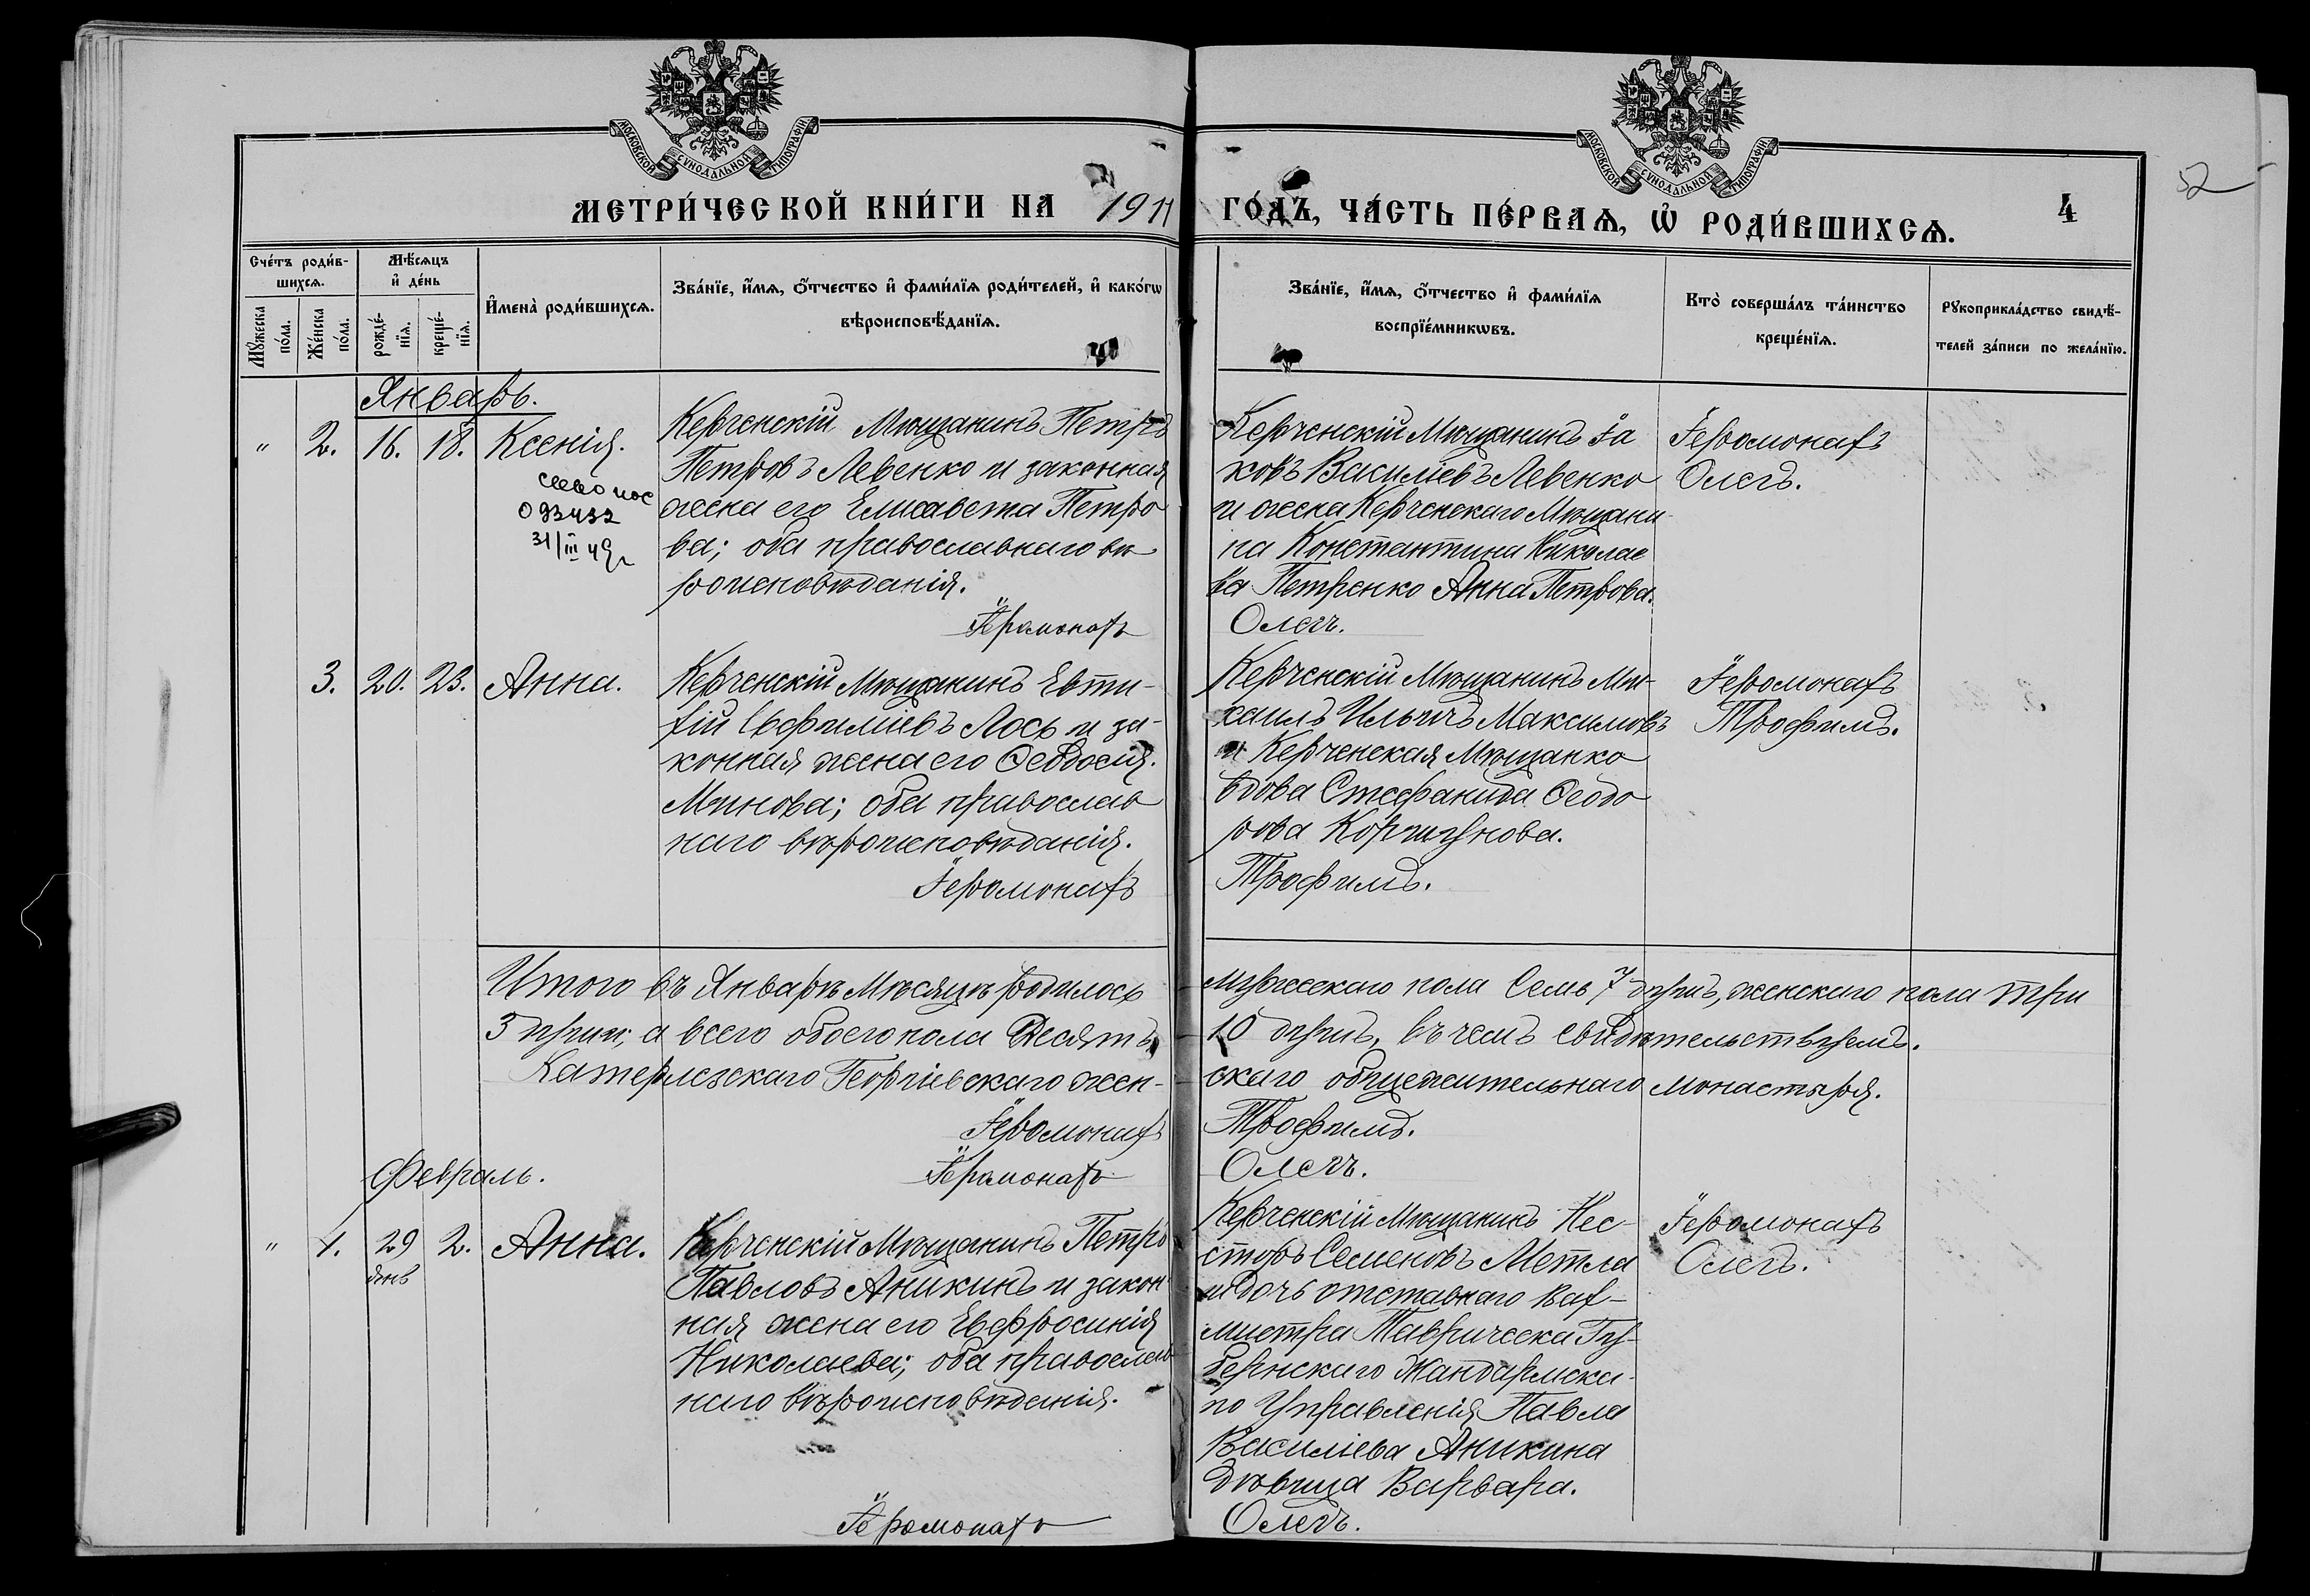 МОСКОВСКОЙ СѴНОДАЛЬНОЙ ТИПОГРАФІИ
МОСКОВСКОЙ СѴНОДАЛЬНОЙ ТИПОГРАФІИ
52
МЕТРИ́ЧЕСКОЙ КНИ́ГИ НА 1911 ГО́ДЪ, ЧА́СТЬ ПЕ́РВАѦ, Ѡ҆ РОДИ́ВШИХСѦ. 4
Сче́тъ роди́в-
шихсѧ.
Мꙋ́жеска
по́ла.
Же́нска
по́ла.
Мѣ́сѧцъ
и҆ де́нь
рожде́-
нїѧ.
креще́-
нїѧ.
И҆мена̀ роди́вшихсѧ.
Зва́нїе, и҆́мѧ, ѻ҆́тчество и҆ фами́лїѧ роди́телей, и҆ како́гѡ
вѣроисповѣ́данїѧ.
Зва́нїе, и҆́мѧ, ѻ҆́тчество и҆ фами́лїѧ
воспрїе́мникѡвъ.
Кто̀ соверша́лъ та́инство
креще́нїѧ.
Рꙋкоприкла́дство свидѣ́-
телей за́писи по жела́нїю.
Январь.
" 2. 16. 18. Ксенія.
093432
31/III 49г
Керченскій Мѣщанинъ Петръ
Петровъ Левенко и законная
жена его Елисавета Петро
ва; оба православнаго вѣ
роисповѣданія.
Іеромонахъ
Керченскій Мѣщанинъ Іа
ковъ Василіевъ Левенко
и жена Керченскаго Мѣщани
на Константина Николае
ва Петренко Анна Петрова.
Олегъ.
Іеромонахъ
Олегъ.
3. 20. 23. Анна.
Керченскій Мѣщанинъ Евти-
хій Евфиміевъ Лось и за-
конная жена его Ѳеодосія
Минова; оба православ
наго вѣроисповѣданія.
Іеромонахъ
Керченскій Мѣщанинъ Ми-
хаилъ Ильичъ Максимовъ
и Керченская Мѣщанко
вдова Стефанида Ѳеодо
рова Коргизнова.
Трофимъ.
Іеромонахъ
Трофимъ.
Итого въ Январѣ Мѣсяцѣ родилось мужескаго пола Семь 7 душъ, женскаго пола три
3 души; а всего обоего пола Десять 10 душъ, въ чемъ свидѣтельствуемъ.
Катерлезскаго Георгіевскаго жен-скаго общежительнаго монастыря.
Іеромонахъ Трофимъ.
Іеромонахъ Олегъ.
Февраль.
" 1. 29 2. Анна.
янв
Керченскій Мѣщанинъ Петръ
Павловъ Аникинъ и закон
ная жена его Евфросинія
Николаева; оба православ
наго вѣроисповѣданія.
Іеромонахъ
Керченскій Мѣщанинъ Нес-
сторъ Семеновъ Метла
и дочь отставнаго Вах-
мистра Таврическа Гу-
бернскаго Жандармска-
го Управленія Павла
Василіева Аникина
дѣвица Варвара.
Олегъ.
Іеромонахъ
Олегъ.